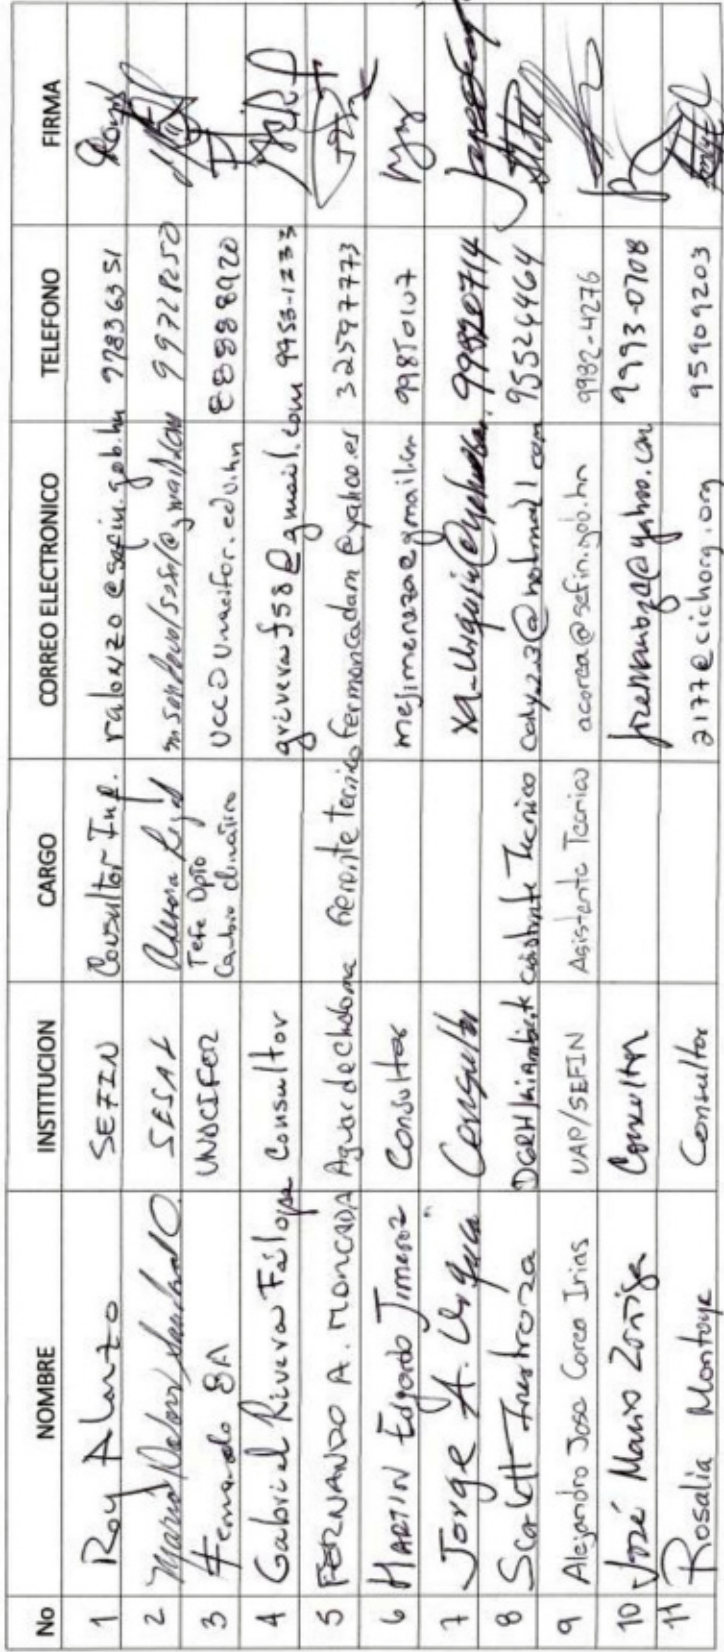 No NOMBRE INSTITUCION CARGO CORREO ELECTRONICO TELEFONO FIRMA
1 Roy Alonzo SEFIN Consultor Inf. ralonzo@sefin.gob.hn 99836351
2 SESAL 99728250
3 Fernando UNACIFOR Jefe Dpto Cambio climático ucc@unacifor.edu.hn 88888920
4 Gabriel Rivera Consultor griveraf58@gmail.com 9953-1233
5 FERNANDO A. MONCADA Aguas de Choloma Gerente Tecnico fermoncadam@yahoo.es 32597773
6 MARTIN Edgardo Jimenez Consultor 99850107
7 Jorge A. Urquia Consultor 99820714
8 Scarlett Inestroza Asistente Tecnico 95524464
9 Alejandro Jose Corea Irias UAP/SEFIN Asistente Tecnico acorea@sefin.gob.hn 9982-4276
10 José Mario Zúñiga Consultor 9993-0708
11 Rosalia Montoya Consultor 2177@cichorg.org 95909203